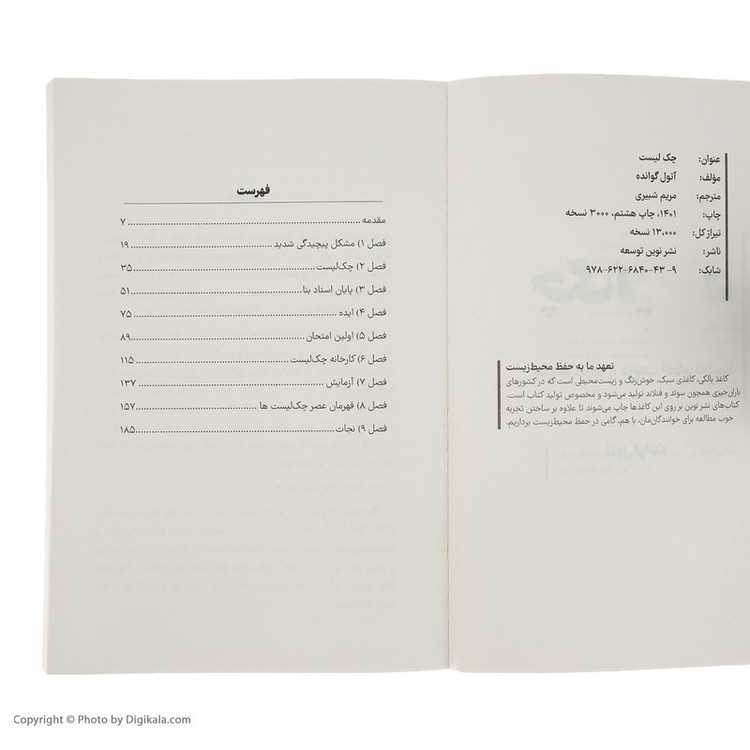 عنوان: چک لیست
مؤلف: آتول گوانده
مترجم: مریم شبیری
چاپ: ۱۴۰۱، چاپ هشتم، ۳۰۰۰ نسخه
تیراژ کل: ۱۳،۰۰۰ نسخه
ناشر: نشر نوین توسعه
شابک: ۹-۴۳-۶۸۴۰-۶۲۲-۹۷۸
تعهد ما به حفظ محیط‌زیست
کاغذ بالکی، کاغذی سبک، خوش‌رنگ و زیست‌محیطی است که در کشورهای
باران‌خیزی همچون سوئد و فنلاند تولید می‌شود و مخصوص تولید کتاب است.
کتاب‌های نشر نوین بر روی این کاغذها چاپ می‌شوند تا علاوه بر ساختن تجربه
خوب مطالعه برای خوانندگان‌مان، با هم، گامی در حفظ محیط‌زیست برداریم.
فهرست
مقدمه ........ ۷
فصل ۱) مشکل پیچیدگی شدید ........ ۱۹
فصل ۲) چک‌لیست ........ ۳۵
فصل ۳) پایان استاد بنا ........ ۵۱
فصل ۴) ایده ........ ۷۵
فصل ۵) اولین امتحان ........ ۸۹
فصل ۶) کارخانه چک‌لیست ........ ۱۱۵
فصل ۷) آزمایش ........ ۱۳۷
فصل ۸) قهرمان عصر چک‌لیست ها ........ ۱۵۷
فصل ۹) نجات ........ ۱۸۵
Copyright © Photo by Digikala.com